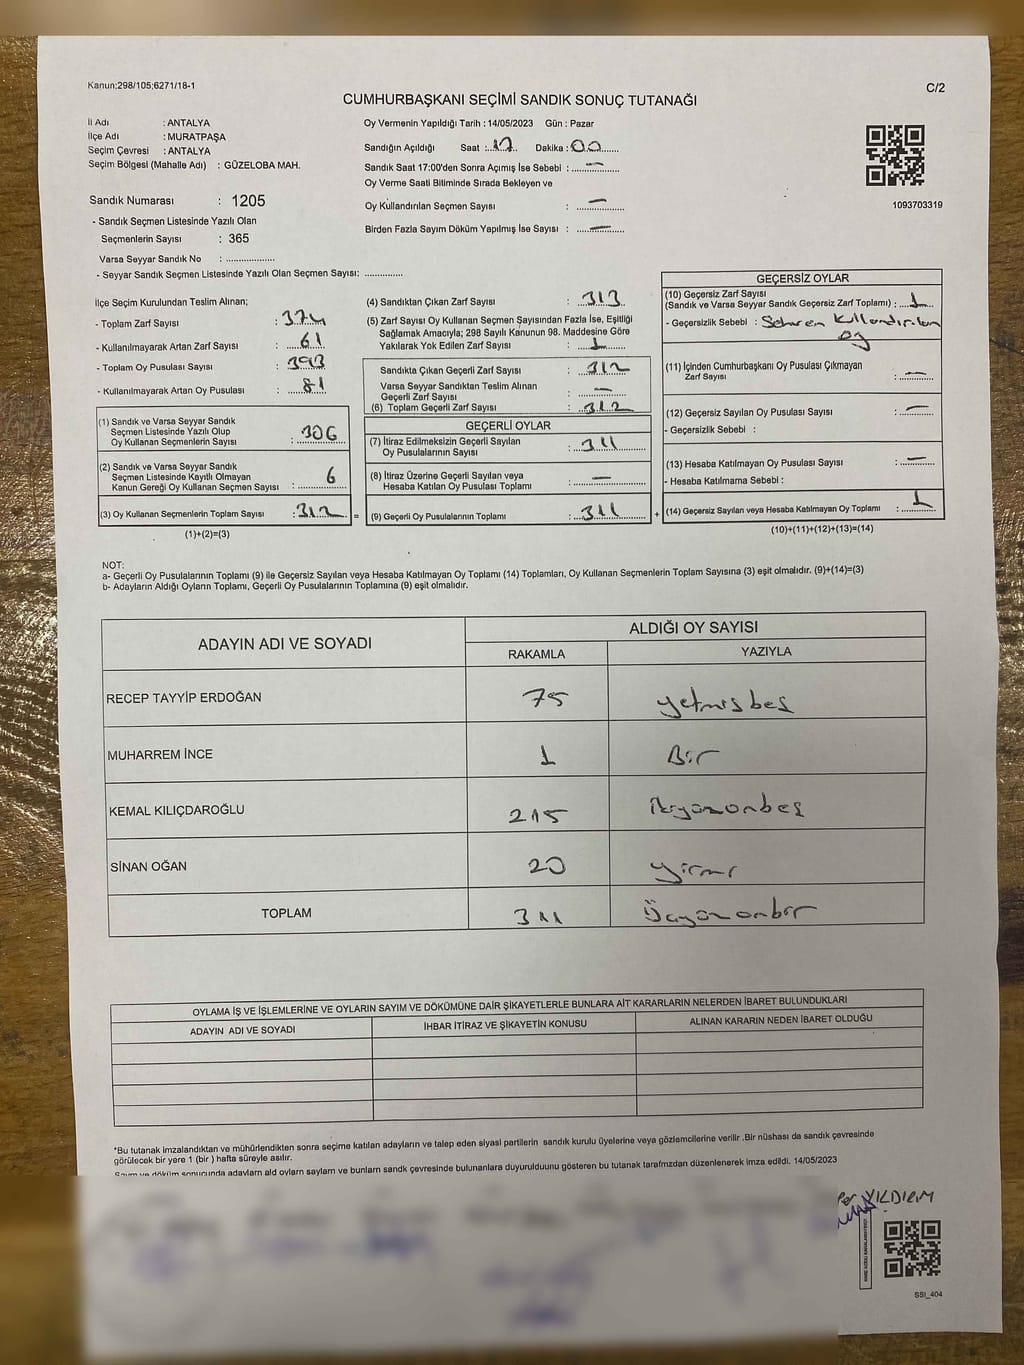 Kanun;298/105;6271/18-1
C/2
CUMHURBAŞKANI SEÇİMİ SANDIK SONUÇ TUTANAĞI
İl Adı : ANTALYA
İlçe Adı : MURATPAŞA
Seçim Çevresi : ANTALYA
Seçim Bölgesi (Mahalle Adı) : GÜZELOBA MAH.
Sandık Numarası : 1205
- Sandık Seçmen Listesinde Yazılı Olan
Seçmenlerin Sayısı : 365
Varsa Seyyar Sandık No : ...................
- Seyyar Sandık Seçmen Listesinde Yazılı Olan Seçmen Sayısı: ..............
Oy Vermenin Yapıldığı Tarih : 14/05/2023 Gün : Pazar
Sandığın Açıldığı Saat : 17 Dakika : 00
Sandık Saat 17:00'den Sonra Açımış İse Sebebi : —
Oy Verme Saati Bitiminde Sırada Bekleyen ve
Oy Kullandırılan Seçmen Sayısı : —
Birden Fazla Sayım Döküm Yapılmış İse Sayısı : —
1093703319
İlçe Seçim Kurulundan Teslim Alınan;
- Toplam Zarf Sayısı : 374
- Kullanılmayarak Artan Zarf Sayısı : 61
- Toplam Oy Pusulası Sayısı : 393
- Kullanılmayarak Artan Oy Pusulası : 81
(1) Sandık ve Varsa Seyyar Sandık
Seçmen Listesinde Yazılı Olup
Oy Kullanan Seçmenlerin Sayısı : 306
(2) Sandık ve Varsa Seyyar Sandık
Seçmen Listesinde Kayıtlı Olmayan
Kanun Gereği Oy Kullanan Seçmen Sayısı : 6
(3) Oy Kullanan Seçmenlerin Toplam Sayısı : 312 =
(1)+(2)=(3)
(4) Sandıktan Çıkan Zarf Sayısı : 313
(5) Zarf Sayısı Oy Kullanan Seçmen Sayısından Fazla İse, Eşitliği
Sağlamak Amacıyla; 298 Sayılı Kanunun 98. Maddesine Göre
Yakılarak Yok Edilen Zarf Sayısı : 1
Sandıkta Çıkan Geçerli Zarf Sayısı : 312
Varsa Seyyar Sandıktan Teslim Alınan
Geçerli Zarf Sayısı : —
(6) Toplam Geçerli Zarf Sayısı : 312
GEÇERLİ OYLAR
(7) İtiraz Edilmeksizin Geçerli Sayılan
Oy Pusulalarının Sayısı : 311
(8) İtiraz Üzerine Geçerli Sayılan veya
Hesaba Katılan Oy Pusulası Toplamı : —
(9) Geçerli Oy Pusulalarının Toplamı : 311 +
GEÇERSİZ OYLAR
(10) Geçersiz Zarf Sayısı
(Sandık ve Varsa Seyyar Sandık Geçersiz Zarf Toplamı) : 1
- Geçersizlik Sebebi : Sehven Kullandırılan
oy
(11) İçinden Cumhurbaşkanı Oy Pusulası Çıkmayan
Zarf Sayısı : —
(12) Geçersiz Sayılan Oy Pusulası Sayısı : —
- Geçersizlik Sebebi :
(13) Hesaba Katılmayan Oy Pusulası Sayısı : —
- Hesaba Katılmama Sebebi :
(14) Geçersiz Sayılan veya Hesaba Katılmayan Oy Toplamı : 1
(10)+(11)+(12)+(13)=(14)
NOT:
a- Geçerli Oy Pusulalarının Toplamı (9) ile Geçersiz Sayılan veya Hesaba Katılmayan Oy Toplamı (14) Toplamları, Oy Kullanan Seçmenlerin Toplam Sayısına (3) eşit olmalıdır. (9)+(14)=(3)
b- Adayların Aldığı Oyların Toplamı, Geçerli Oy Pusulalarının Toplamına (9) eşit olmalıdır.
ADAYIN ADI VE SOYADI
ALDIĞI OY SAYISI
RAKAMLA YAZIYLA
RECEP TAYYİP ERDOĞAN 75 yetmişbeş
MUHARREM İNCE 1 Bir
KEMAL KILIÇDAROĞLU 215 ikiyüzonbeş
SİNAN OĞAN 20 yirmi
TOPLAM 311 Üçyüzonbir
OYLAMA İŞ VE İŞLEMLERİNE VE OYLARIN SAYIM VE DÖKÜMÜNE DAİR ŞİKAYETLERLE BUNLARA AİT KARARLARIN NELERDEN İBARET BULUNDUKLARI
ADAYIN ADI VE SOYADI İHBAR İTİRAZ VE ŞİKAYETİN KONUSU ALINAN KARARIN NEDEN İBARET OLDUĞU
*Bu tutanak imzalandıktan ve mühürlendikten sonra seçime katılan adayların ve talep eden siyasi partilerin sandık kurulu üyelerine veya gözlemcilerine verilir .Bir nüshası da sandık çevresinde
görülecek bir yere 1 (bir ) hafta süreyle asılır.
Sayım ve döküm sonucunda adayların ald oyların sayların ve bunların sandk çevresinde bulunanlara duyurulduunu gösteren bu tutanak tarafmzdan düzenlenerek imza edildi. 14/05/2023
YILDIRIM
SSI_404